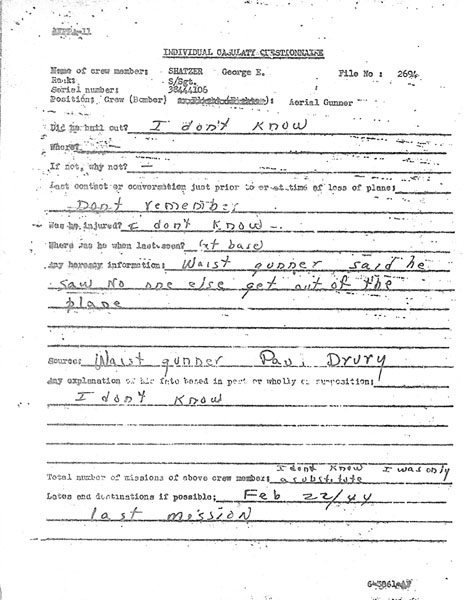 INDIVIDUAL CASULATY QUESTIONNAIRE
Name of crew member: SHATZER George E. File No : 2694
Rank: S/Sgt.
Serial number: 38444106
Position: Crew (Bomber) : Aerial Gunner
Did he bail out? I don't Know
Where?
If not, why not?
Last contact or conversation just prior to or at time of loss of plane:
Dont remember
Was he injured? I dont Know -
Where was he when last seen? (at base)
Any hearsay information: Waist gunner said he
saw No one else get out of the
plane
Source: Waist gunner Paul Drury
Any explanation of his fate based in part or wholly on supposition:
I dont Know
I dont Know I was only
Total number of missions of above crew member: a substitute
Dates and destinations if possible: Feb 22/44
last mission